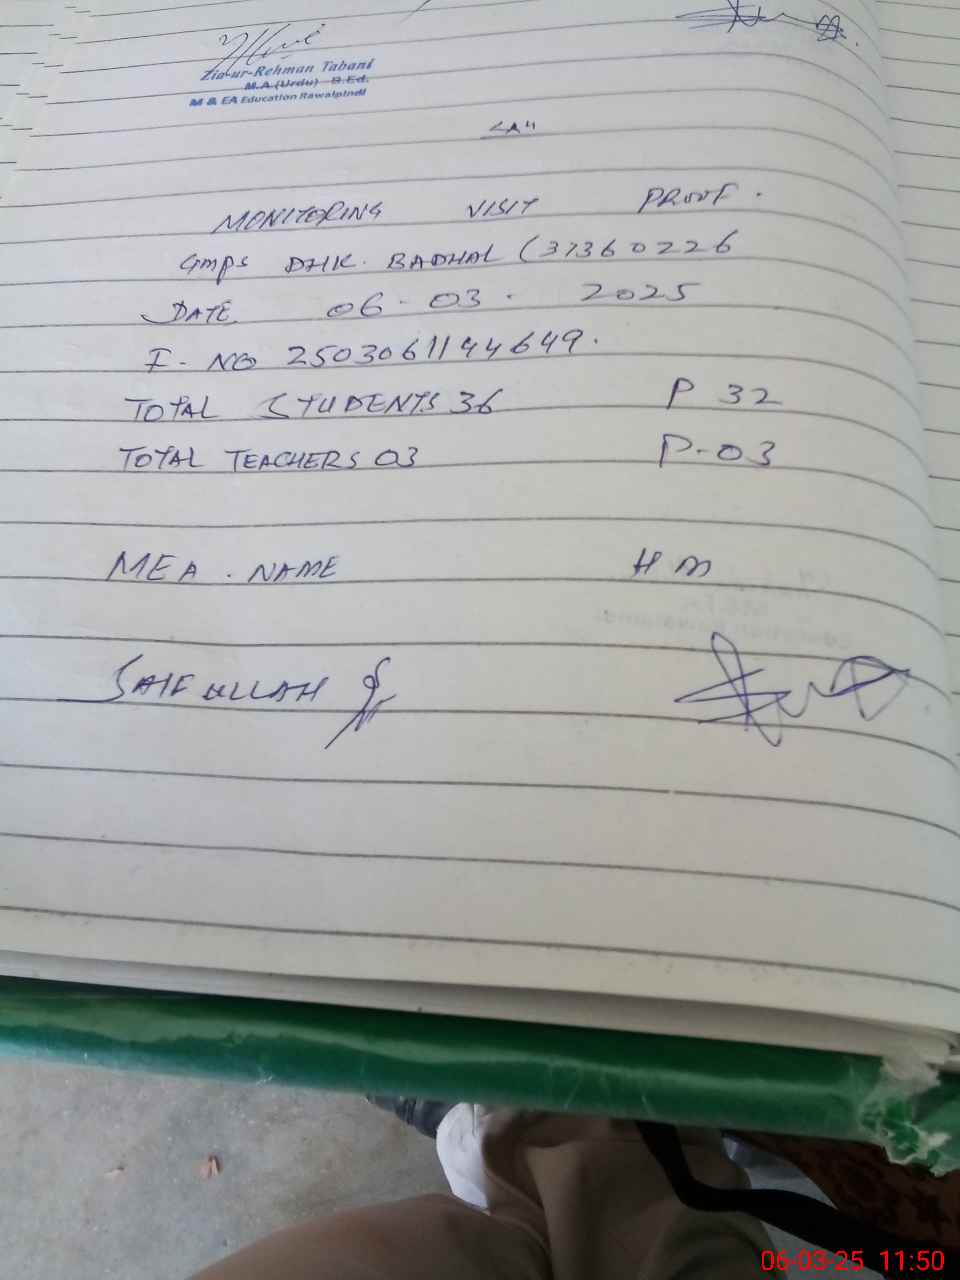 Zia-ur-Rehman Tabani
M.A (Urdu) B.Ed.
M & EA Education Rawalpindi
MONITORING VISIT PROOF.
GMPS DHK. BADHAL (37360226
DATE 06-03-2025
I-NO 2503061144649.
TOTAL STUDENTS 36 P 32
TOTAL TEACHERS 03 P-03
MEA. NAME HM
SAIF ULLAH
06-03-25 11:50